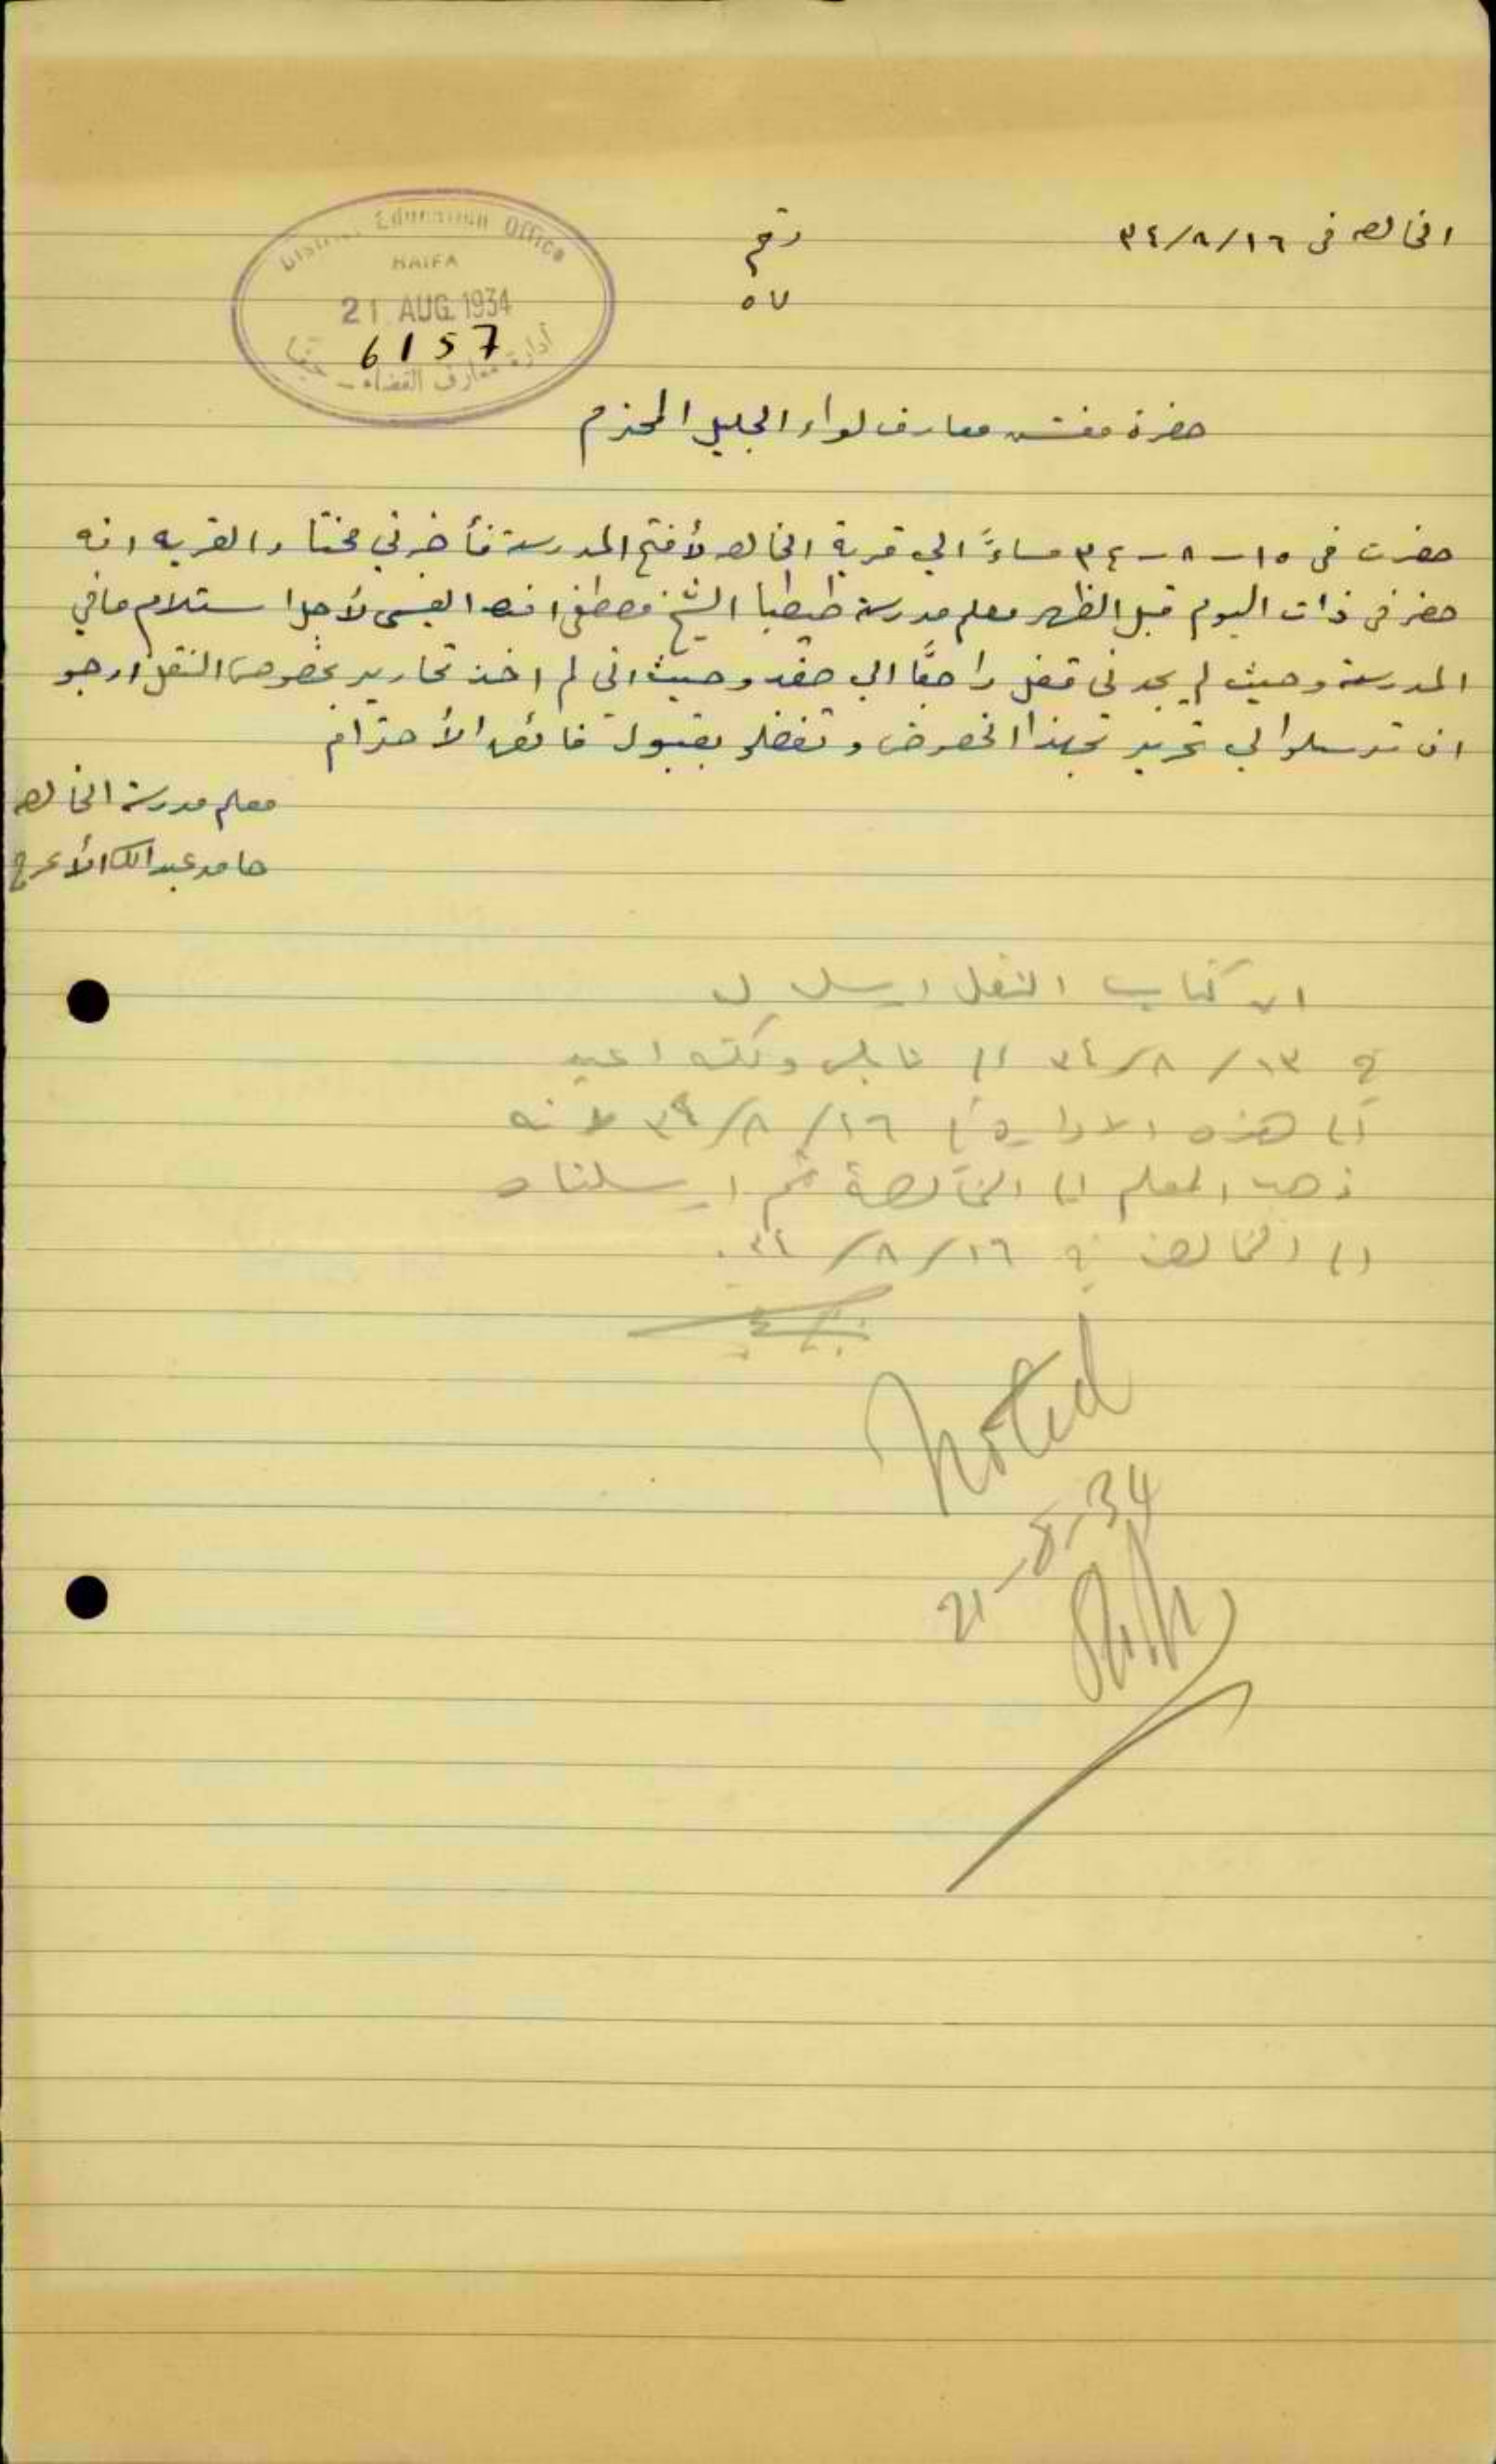 الخالصه في ١٦/٨/٣٤
رقم
٥٧
District Education Office
HAIFA
21 AUG 1934
6157
أدارة معارف القضاء - حيفا
حضرة مفتش معارف لواء الجليل المحترم
حضرت في ١٥-٨-٣٤ مساءً الى قرية الخالصه لأفتح المدرسة فأخبرني مختار القريه انه
حضر في ذات اليوم قبل الظهر معلم مدرسة طيطبا الشيخ مصطفى افندي العيسى لأجل استلام ما في
المدرسة وحيث لم يجدني قفل راجعًا الى صفد وحيث اني لم اخذ تحارير بخصوص النقل ارجو
ان ترسلوا لي تحرير بهذا الخصوص وتفضلو بقبول فائق الأحترام
معلم مدرسة الخالصه
حامد عبدالله الأعرج
ان كتاب النقل ارسل له
في ١٣/٨/٣٤ الى نابلس ولكنه اعيد
الى هذه الادارة في ١٦/٨/٣٤ لانه
ذهب المعلم الى الخالصة ثم ارسلناه
الى الخالصة في ١٦/٨/٣٤.
Noted
21-8-34